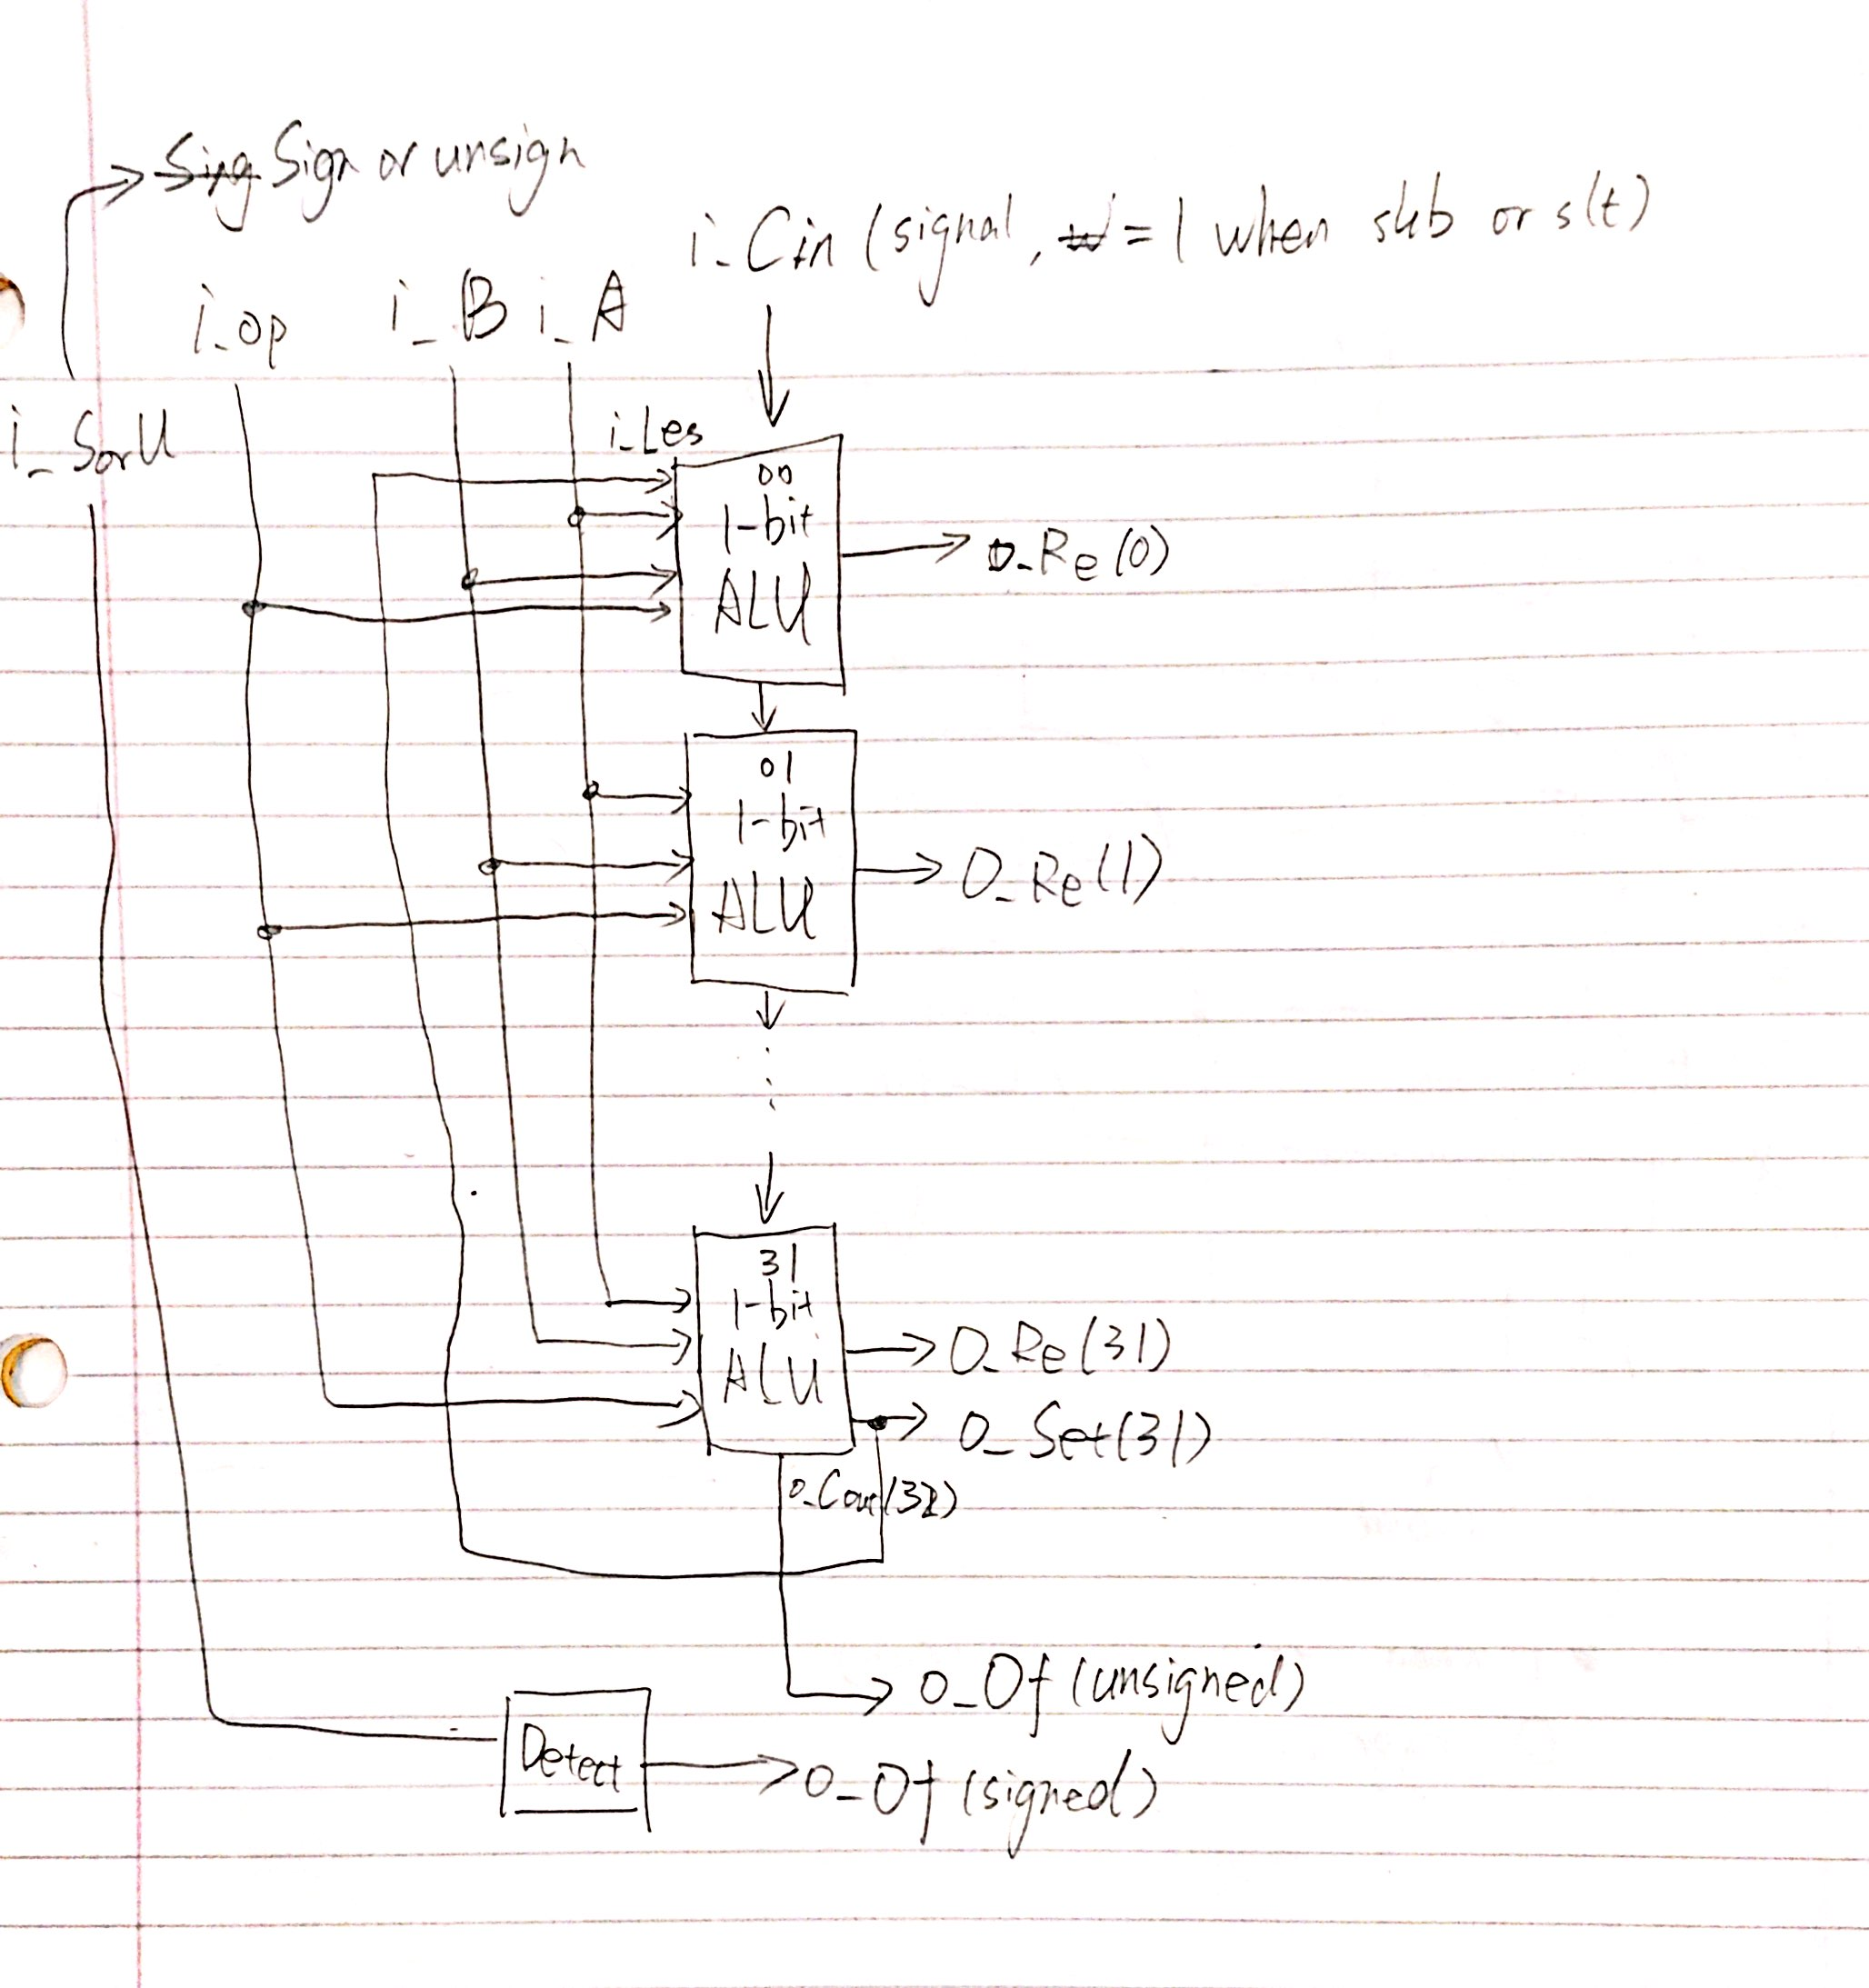 Sign or unsign
i_Cin (signal, =1 when sub or slt)
i_op i_B i_A
i_SorU
i_Les
00
1-bit
ALU
o_Re(0)
01
1-bit
ALU
O_Re(1)
31
1-bit
ALU
O_Re(31)
O_Set(31)
o_Cout(32)
O_Of (unsigned)
Detect
O_Of (signed)